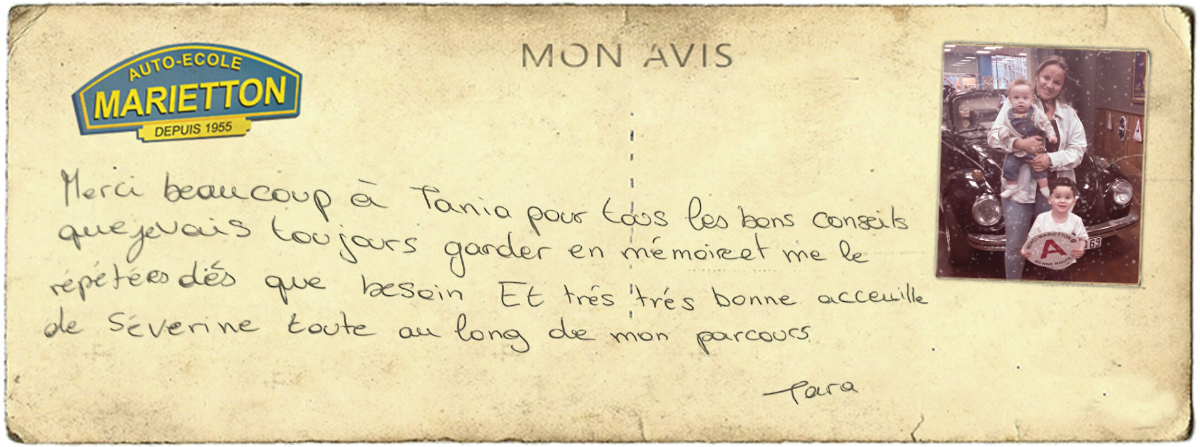 AUTO-ECOLE
MARIETTON
DEPUIS 1955
MON AVIS
Merci beaucoup à Tania pour tous les bons conseils
que je vais toujours garder en mémoire et me le
répétées dés que besoin Et trés trés bonne acceuille
de Séverine toute au long de mon parcours
Tara
A
69